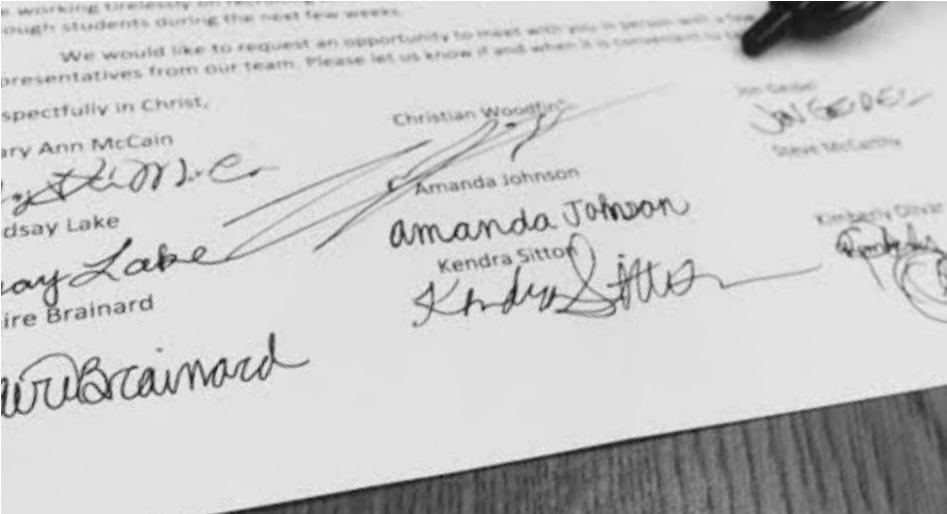 working tirelessly on
ough students during the next few weeks.
We would like to request an opportunity to meet with you in person with a few
presentatives from our team. Please let us know if and when it is convenient to
spectfully in Christ,
ary Ann McCain
dsay Lake
ay Lake
ire Brainard
aire Brainard
Christian Woodfin
Amanda Johnson
Amanda Johnson
Kendra Sitton
Kendra Sitton
Jon Geidel
Jon Geidel
Steve McCarthy
Kimberly Olivar
Kimberly